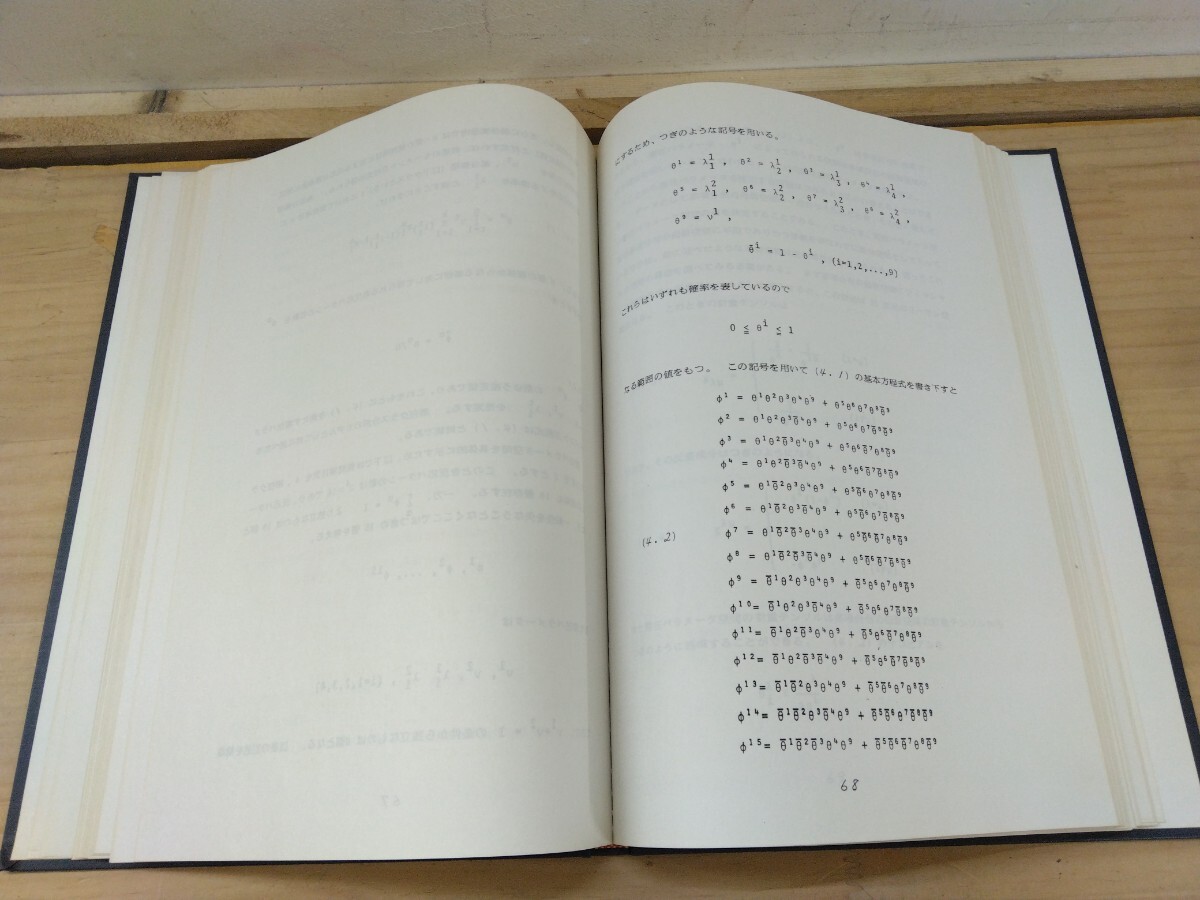 にするため、つぎのような記号を用いる。
θ¹ = λ¹₁ , θ² = λ¹₂ , θ³ = λ¹₃ , θ⁴ = λ¹₄ ,
θ⁵ = λ²₁ , θ⁶ = λ²₂ , θ⁷ = λ²₃ , θ⁸ = λ²₄ ,
θ⁹ = ν¹ ,
θ̄ⁱ = 1 - θⁱ , (i=1,2,...,9)
これらはいずれも確率を表しているので
0 ≦ θⁱ ≦ 1
なる範囲の値をもつ。 この記号を用いて (4.1) の基本方程式を書き下すと
φ¹ = θ¹θ²θ³θ⁴θ⁹ + θ⁵θ⁶θ⁷θ⁸θ̄⁹
φ² = θ¹θ²θ³θ̄⁴θ⁹ + θ⁵θ⁶θ⁷θ̄⁸θ̄⁹
φ³ = θ¹θ²θ̄³θ⁴θ⁹ + θ⁵θ⁶θ̄⁷θ⁸θ̄⁹
φ⁴ = θ¹θ²θ̄³θ̄⁴θ⁹ + θ⁵θ⁶θ̄⁷θ̄⁸θ̄⁹
φ⁵ = θ¹θ̄²θ³θ⁴θ⁹ + θ⁵θ̄⁶θ⁷θ⁸θ̄⁹
φ⁶ = θ¹θ̄²θ³θ̄⁴θ⁹ + θ⁵θ̄⁶θ⁷θ̄⁸θ̄⁹
(4.2) φ⁷ = θ¹θ̄²θ̄³θ⁴θ⁹ + θ⁵θ̄⁶θ̄⁷θ⁸θ̄⁹
φ⁸ = θ¹θ̄²θ̄³θ̄⁴θ⁹ + θ⁵θ̄⁶θ̄⁷θ̄⁸θ̄⁹
φ⁹ = θ̄¹θ²θ³θ⁴θ⁹ + θ̄⁵θ⁶θ⁷θ⁸θ̄⁹
φ¹⁰= θ̄¹θ²θ³θ̄⁴θ⁹ + θ̄⁵θ⁶θ⁷θ̄⁸θ̄⁹
φ¹¹= θ̄¹θ²θ̄³θ⁴θ⁹ + θ̄⁵θ⁶θ̄⁷θ⁸θ̄⁹
φ¹²= θ̄¹θ²θ̄³θ̄⁴θ⁹ + θ̄⁵θ⁶θ̄⁷θ̄⁸θ̄⁹
φ¹³= θ̄¹θ̄²θ³θ⁴θ⁹ + θ̄⁵θ̄⁶θ⁷θ⁸θ̄⁹
φ¹⁴= θ̄¹θ̄²θ³θ̄⁴θ⁹ + θ̄⁵θ̄⁶θ⁷θ̄⁸θ̄⁹
φ¹⁵= θ̄¹θ̄²θ̄³θ⁴θ⁹ + θ̄⁵θ̄⁶θ̄⁷θ⁸θ̄⁹
68